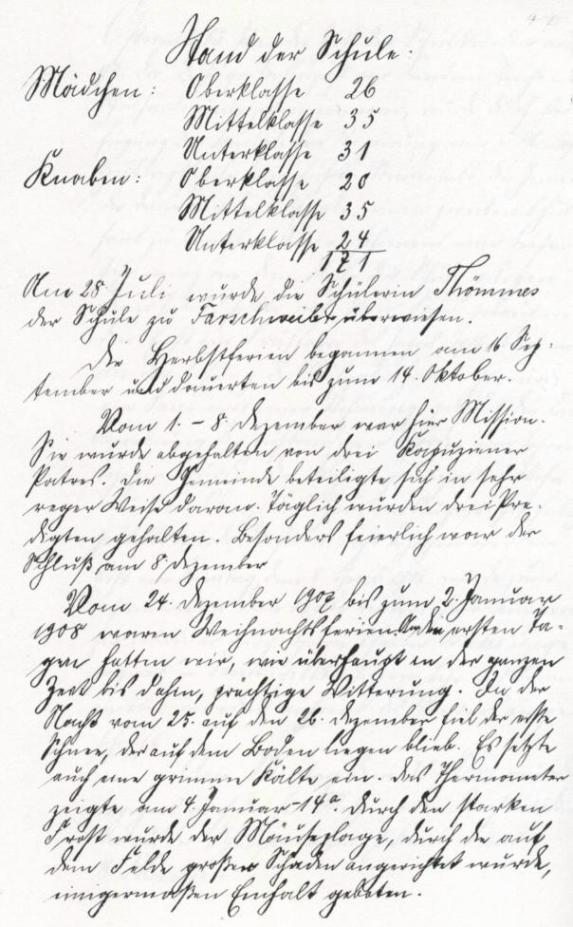 Stand der Schule:
Mädchen: Oberklasse 26
Mittelklasse 35
Unterklasse 31
Knaben: Oberklasse 20
Mittelklasse 35
Unterklasse 24
171
Am 28 Juli wurde die Schülerin Thömmes
der Schule zu Farschweiler überwiesen.
Die Herbstferien begannen am 16 Sep-
tember und dauerten bis zum 14. Oktober.
Vom 1. - 8. Dezember war hier Mission.
Sie wurde abgehalten von drei Kapuziener
Patres. Die Gemeinde beteiligte sich in sehr
reger Weise daran. Täglich wurden drei Pre-
digten gehalten. Besonders feierlich war der
Schluß am 8. Dezember
Vom 24. Dezember 1907 bis zum 2. Januar
1908 waren Weihnachtsferien. In den ersten Ta-
gen hatten wir, wie überhaupt in der ganzen
Zeit bis dahin, prächtige Witterung. In der
Nacht vom 25. auf den 26. Dezember fiel der erste
Schnee, der auf dem Boden liegen blieb. Es setzte
auch eine grimme Kälte ein. Das Thermometer
zeigte am 4. Januar -14°. Durch den starken
Frost wurde der Mäuseplage, durch die auf
dem Felde großer Schaden angerichtet wurde,
einigermaßen Einhalt geboten.